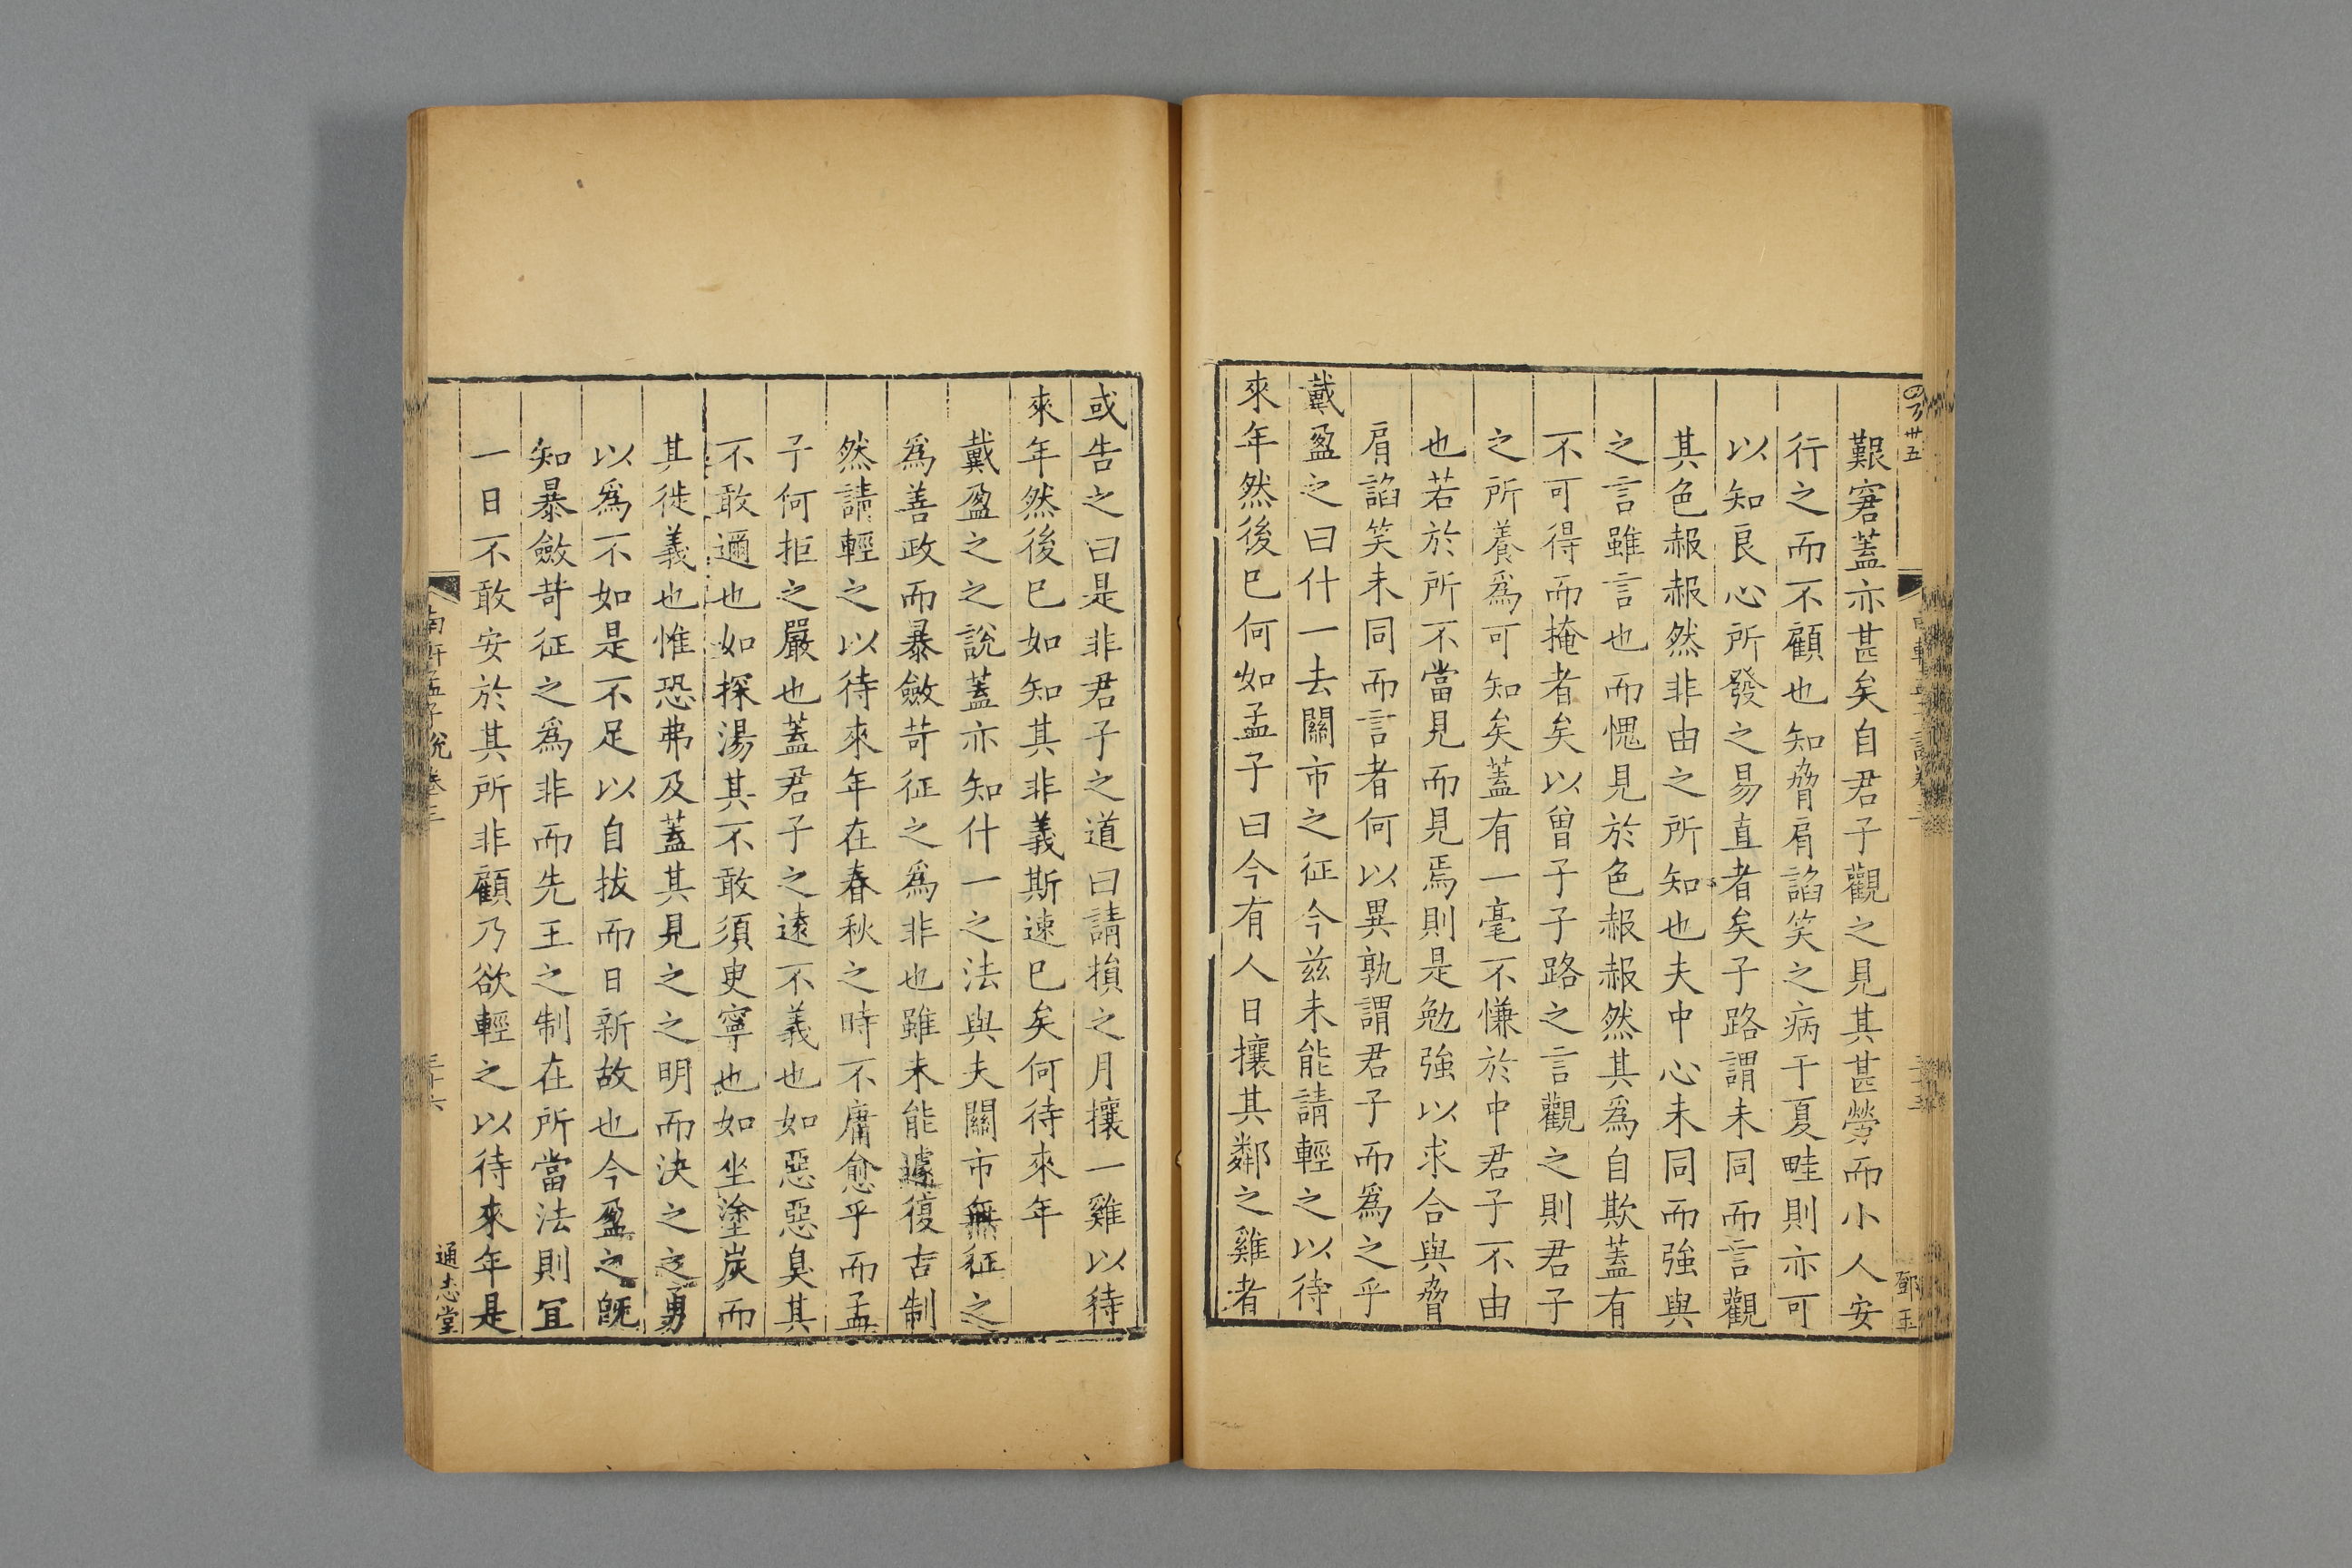 艱窘蓋亦甚矣自君子觀之見其甚勞而小人安
行之而不顧也知脅肩諂笑之病于夏畦則亦可
以知良心所發之易直者矣子路謂未同而言觀
其色赧赧然非由之所知也夫中心未同而強與
之言雖言也而愧見於色赧赧然其爲自欺蓋有
不可得而掩者矣以曾子子路之言觀之則君子
之所養爲可知矣蓋有一毫不慊於中君子不由
也若於所不當見而見焉則是勉強以求合與脅
肩諂笑未同而言者何以異孰謂君子而爲之乎
戴盈之曰什一去關市之征今兹未能請輕之以待
來年然後已何如孟子曰今有人日攘其鄰之雞者
或告之曰是非君子之道曰請損之月攘一雞以待
來年然後已如知其非義斯速已矣何待來年
戴盈之之說蓋亦知什一之法與夫關市無征之
爲善政而暴斂苛征之爲非也雖未能遽復古制
然請輕之以待來年在春秋之時不庸愈乎而孟
子何拒之嚴也蓋君子之遠不義也如惡惡臭其
不敢邇也如探湯其不敢須臾寧也如坐塗炭而
其徙義也惟恐弗及蓋其見之之明而決之之勇
以爲不如是不足以自拔而日新故也今盈之旣
知暴斂苛征之爲非而先王之制在所當法則宜
一日不敢安於其所非顧乃欲輕之以待來年是
南軒孟子說卷三
通志堂